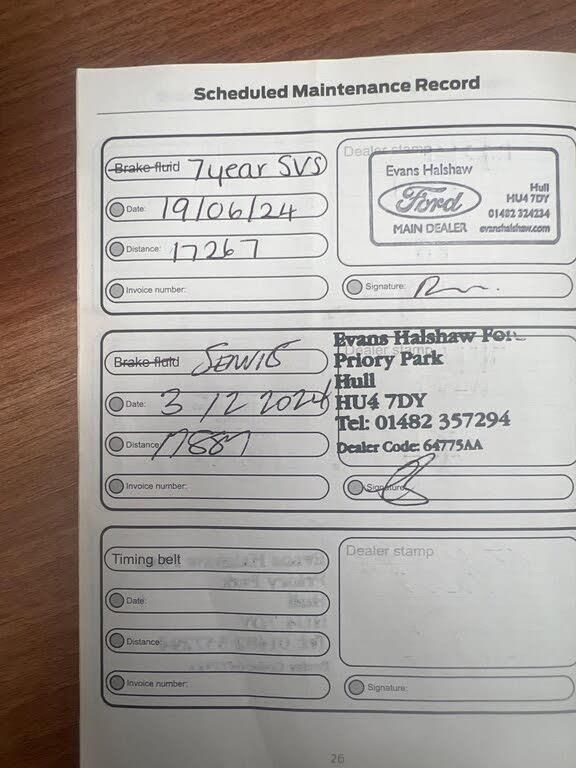 Scheduled Maintenance Record
Brake fluid 7 year SVS
Date: 19/06/24
Distance: 17267
Invoice number:
Dealer stamp
Evans Halshaw
Ford
MAIN DEALER
Hull
HU4 7DY
01482 324234
evanshalshaw.com
Signature:
Brake fluid
Date: 3/12 2024
Distance:
Invoice number:
Dealer stamp
Evans Halshaw For
Priory Park
Hull
HU4 7DY
Tel: 01482 357294
Dealer Code: 64775AA
Signature:
Timing belt
Date:
Distance:
Invoice number:
Dealer stamp
Signature:
26